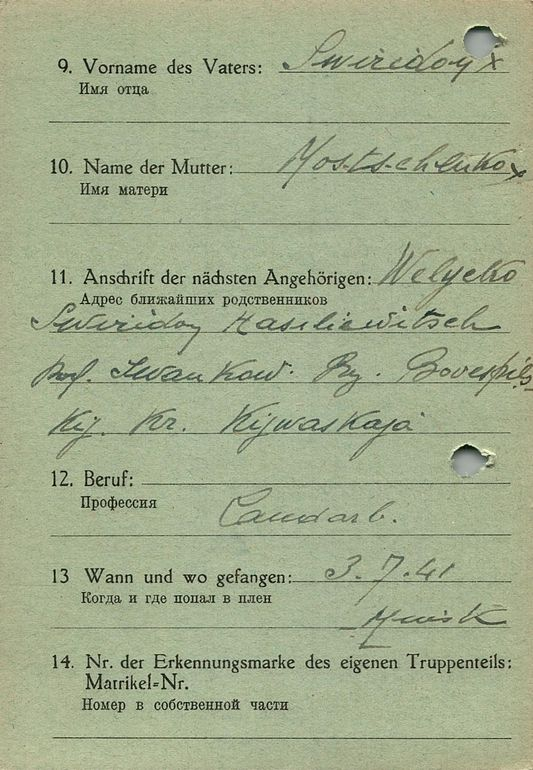 9. Vorname des Vaters: Swiridon x
Имя отца
10. Name der Mutter: Mostschenko x
Имя матери
11. Anschrift der nächsten Angehörigen: Welycko
Адрес ближайших родственников
Swiridon Wasiliewitsch
Dorf. Iwankow. Bez. Borespils-
Kij. Kr. Kijwaskaja
12. Beruf:
Профессия
Landarb.
13 Wann und wo gefangen: 3.7.41
Когда и где попал в плен
Minsk
14. Nr. der Erkennungsmarke des eigenen Truppenteils:
Matrikel-Nr.
Номер в собственной части